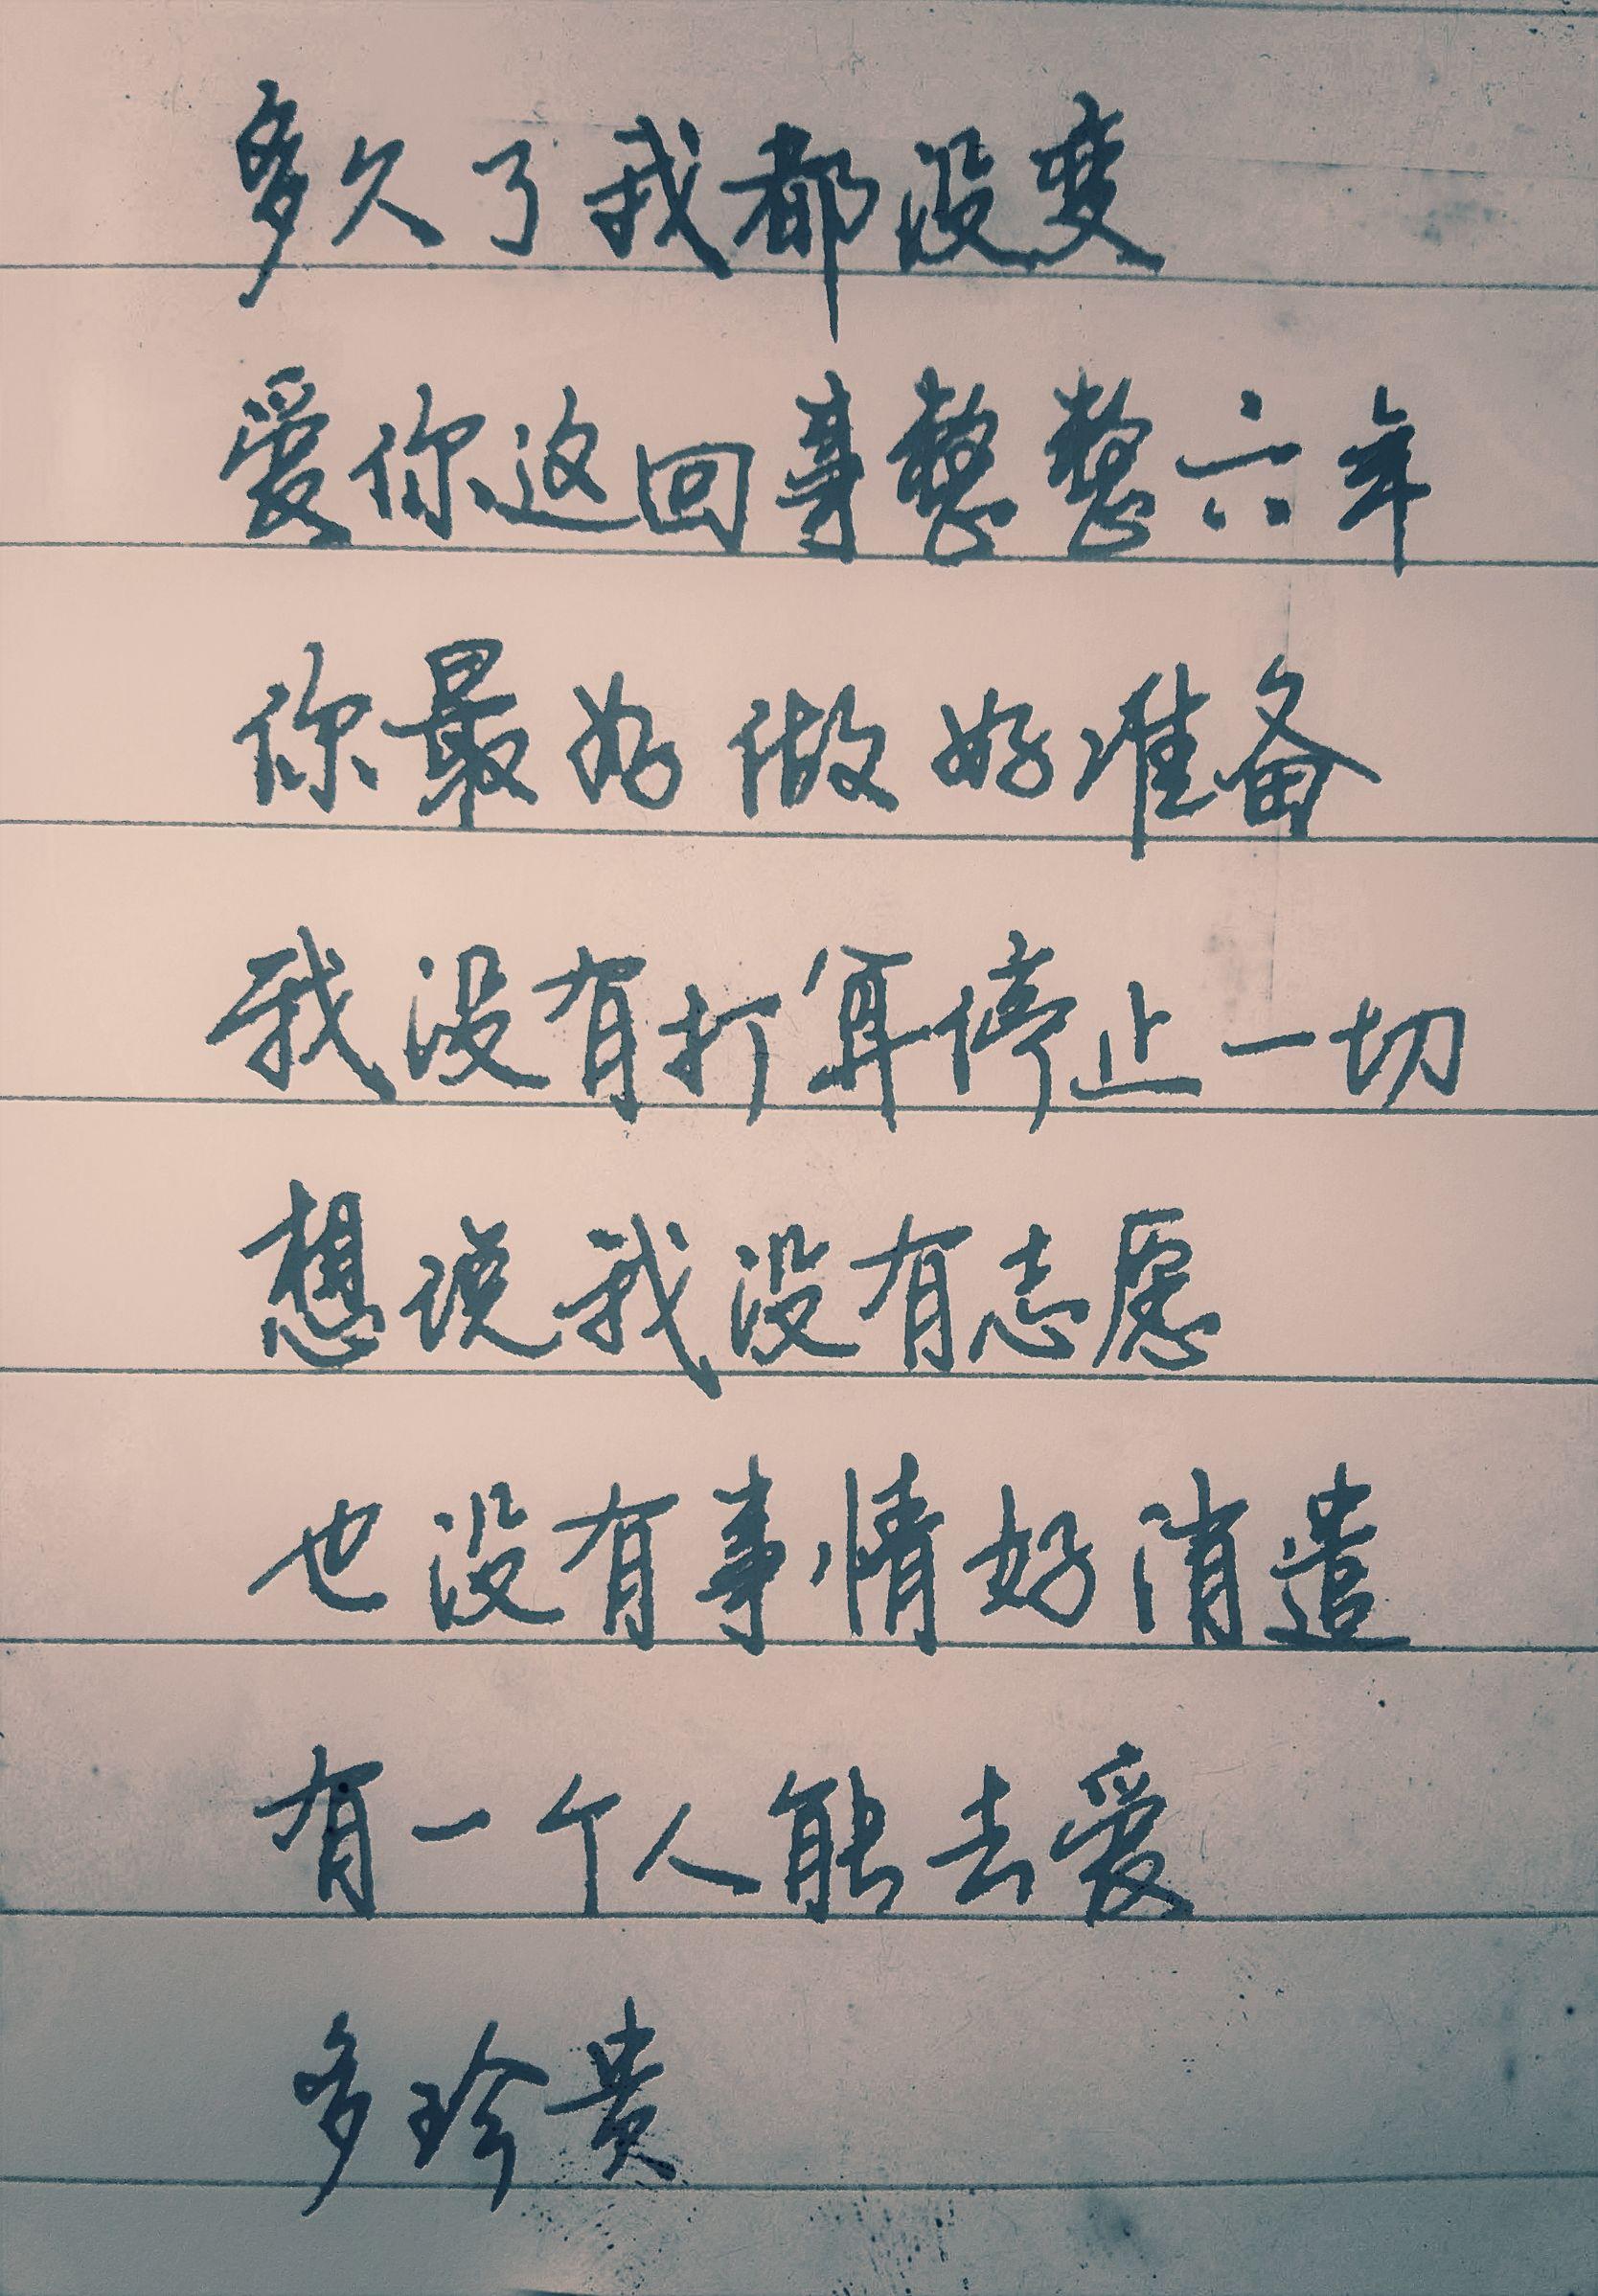 多久了我都没变
爱你这回事整整六年
你最好做好准备
我没有打算停止一切
想说我没有志愿
也没有事情好消遣
有一个人能去爱
多珍贵